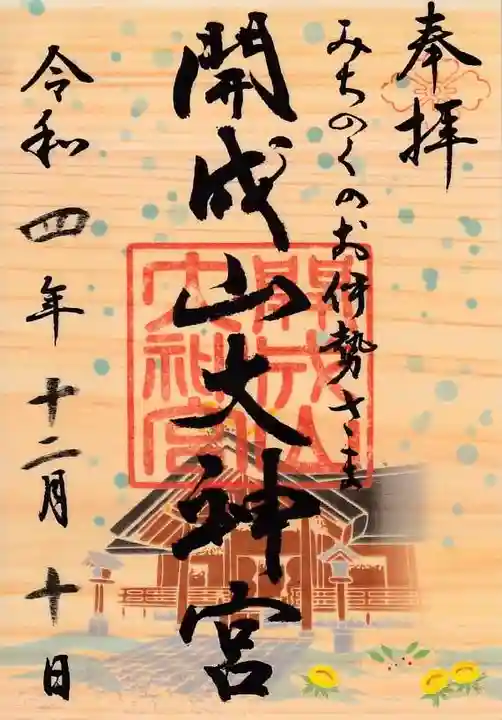 奉拝
みちのくのお伊勢さま
開成山大神宮
開成山
大神宮
令和四年十二月十日